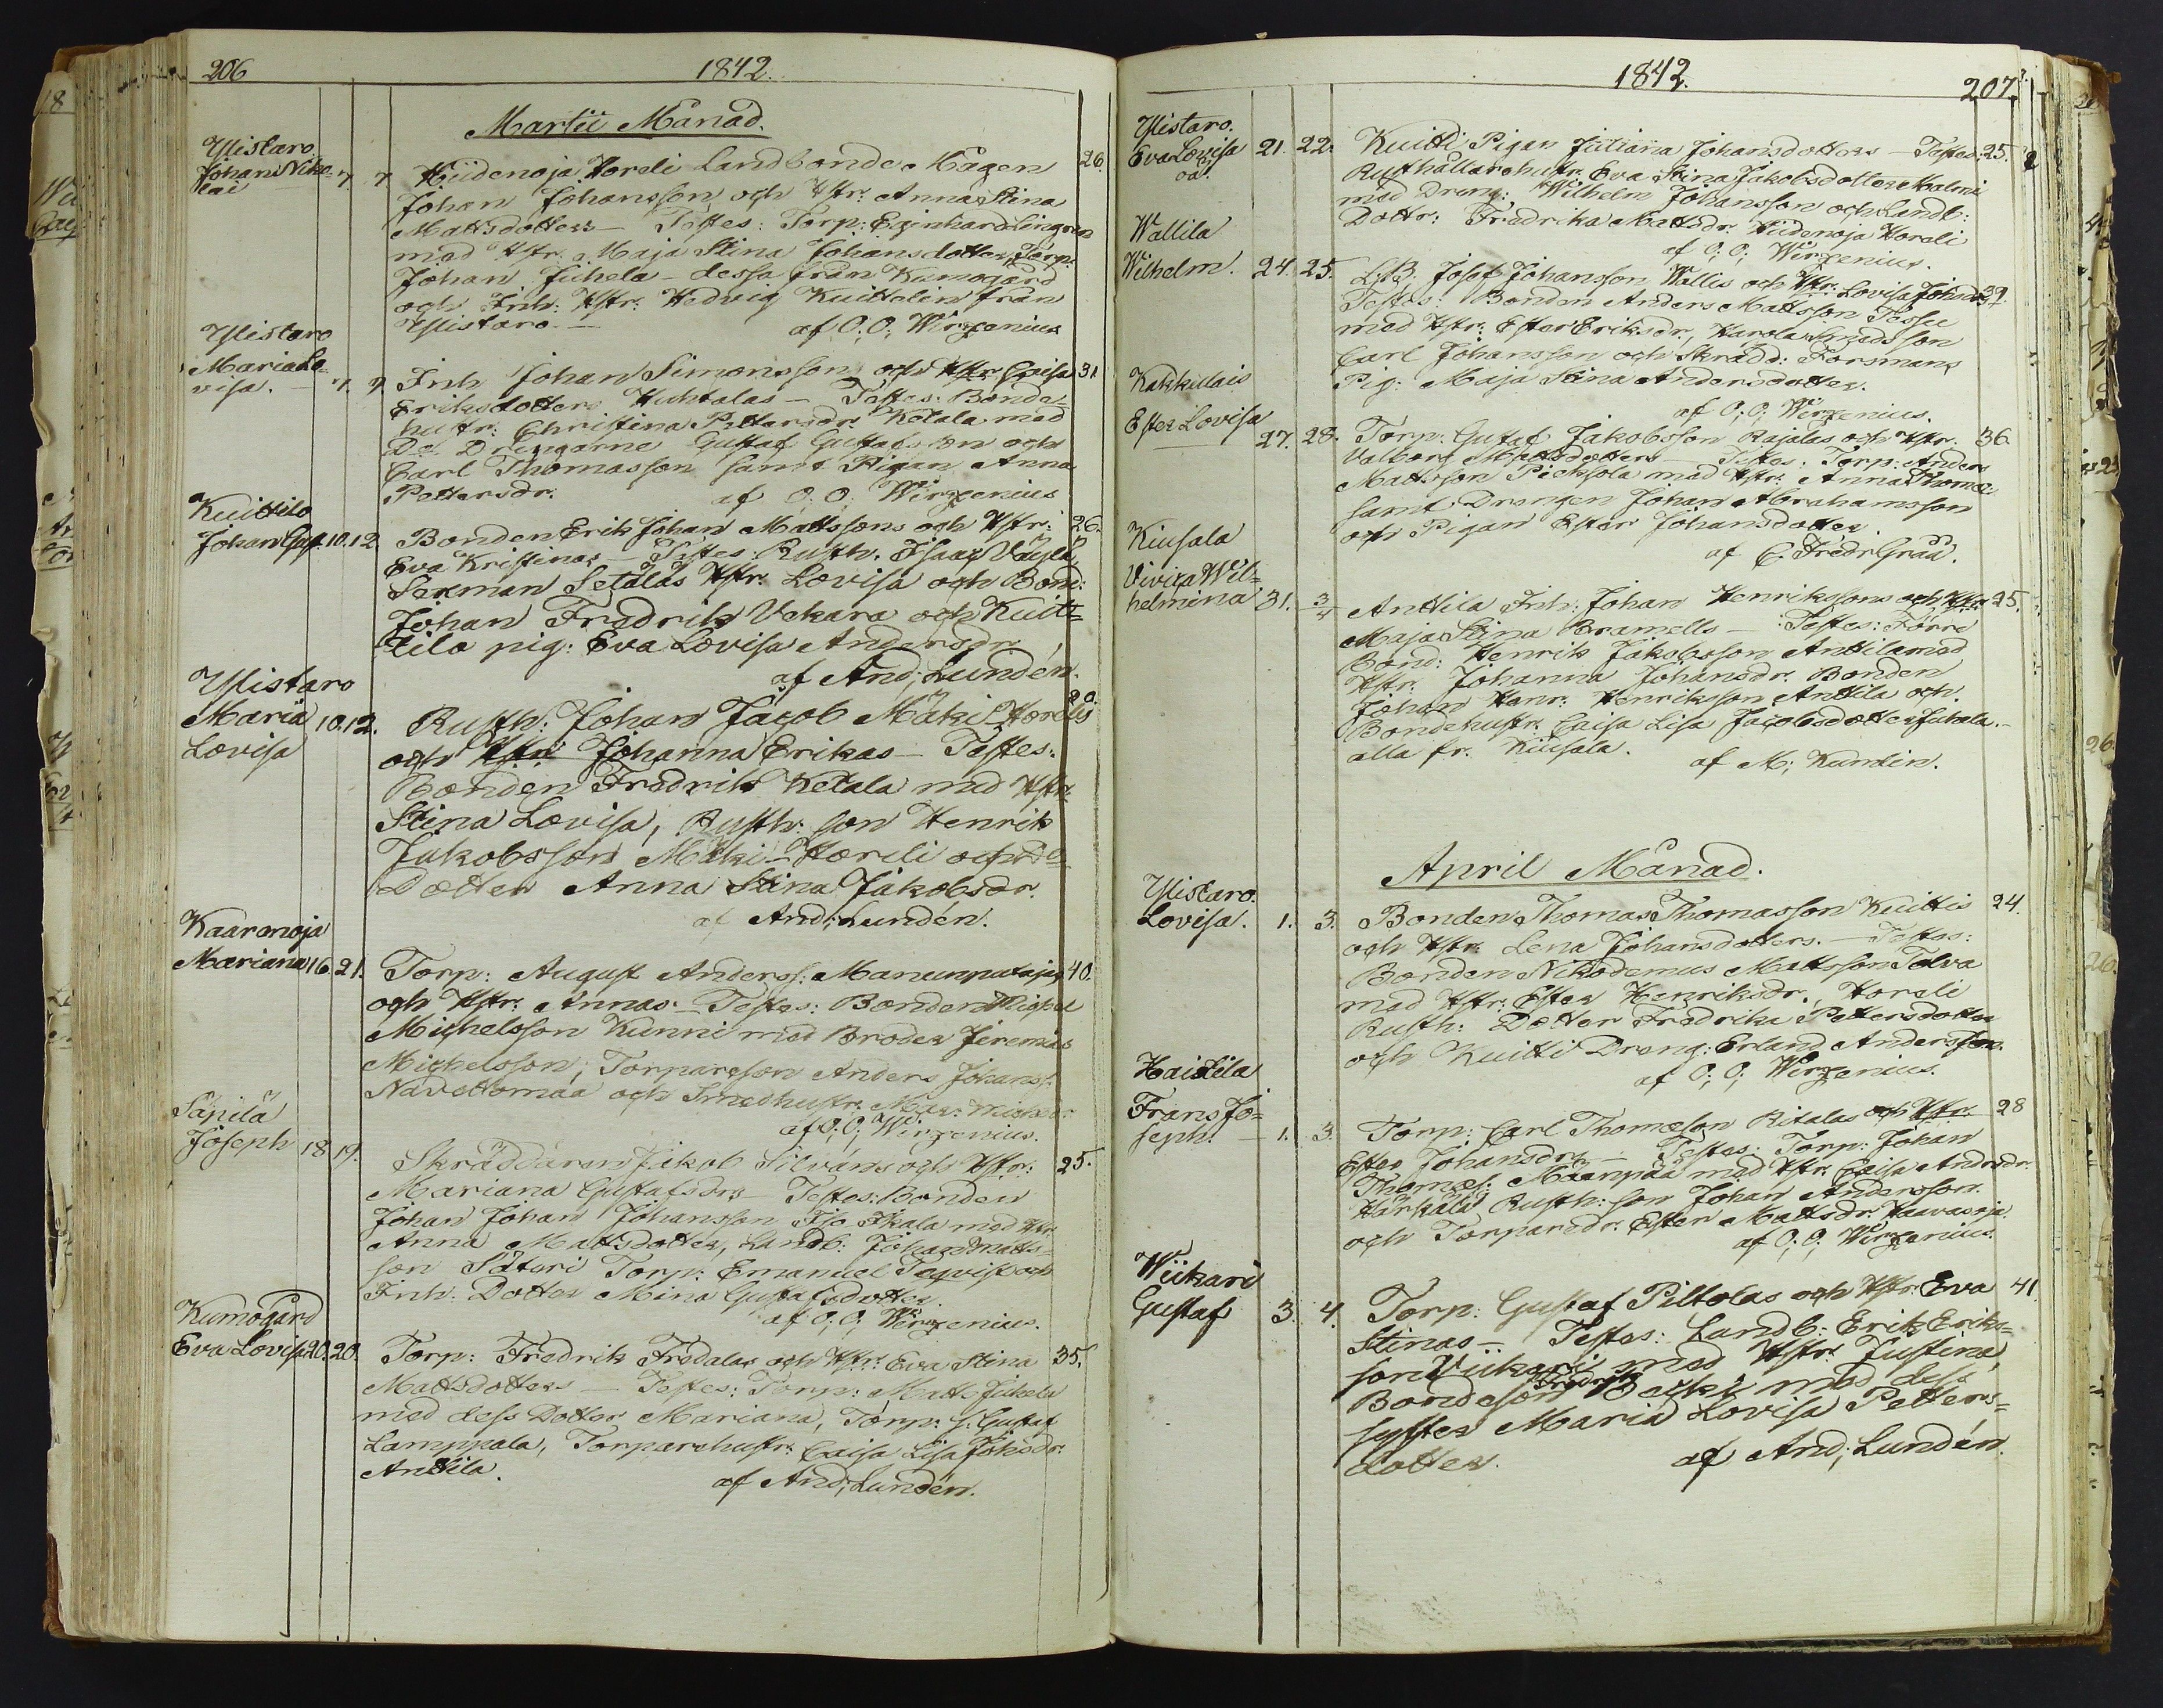 206
1842.
Martii Månad.
Ylistaro.
Johan Niko-
lai
7. 7. Hiidenoja Horeli Landbonde Mågen 26.
Johan Johansson och Hstr. Anna Stina
Mattsdotters – Testes: Torp: Eginhard Lingren
med Hstr. Maja Stina Johansdotter, Torp:
Johan Juhela – dessa från Kumogård
och Inh: Hstr. Hedvig Kuittelin från
Ylistaro. – af O; O; Wirzenius
Ylistaro
Maria Lo-
visa. –
7. 9. Inh Johan Simonsson och Hstr Caisa 31
Eriksdotters Huhtalas – Testes: Bonde-
hustr: Christina Pettersdr Ketala med
De Drengarne Gustaf Gustafsson och
Carl Thomasson samt Pigan Anna
Pettersdr. af O. O. Wirzenius
Kuittilo
Johan Gust. 10. 12. Bonden Erik Johan Mattssons och Hstr: 26.
Eva Kristinas – Testes: Rusth. Isaac
Sexman Setälas Hstr. Lovisa och Bond:
Johan Fredrik Vekara och Kuit-
tilo pig: Eva Lovisa Andersdr
af And; Lundén.
Ylistaro
Maria
Lovisa
10. 12. Rusth: Johan Jacob Mäki Horelis 20.
och Hstr Johanna Erikas – Testes:
Bonden Fredrik Ketala med Hstr
Stina Lovisa, Rusth: son Henrik
Jakobsson Mäki-Horeli och
Dotter Anna Stina Jakobsdr.
af And; Lundén.
Kaaronoja
Mariana 16. 21. Torp: August Anderss: 40.
och Hstr: Annas – Testes: Bonden Michel
Michelsson Kunni med Broder Jeremias
Michelsson, Torpareson Anders Johanss:
Navettomaa och Smedhustr. Mar: Michelsdr.
af O; O; Wirzenius.
Säpilä
Joseph 18. 19. Skräddaren Jakob Silvans och Hstr: 25.
Mariana Gustafsdrs – Testes: Bonden
Johan Johan Johansson Iso Ikala med Hstr
Anna Mattsdotter, Landb: Johan Matts-
son Säturi Torp: Emanuel Teqvist och
Inh. Dotter Mina Gustafsdotter.
af O; O; Wirzenius.
Kumogård
Eva Lovisa 20. 20. Torp: Fredrik Fredalas och Hstr. Eva Stina 35.
Mattsdotters – Testes: Torp: Matts Juhela
med dess Dotter Mariana, Torp: s: Gustaf
Lamppala, Torparehustr: Caisa Lisa Johsdr.
Anttila. af And; Lundén.
1842.
207.
Ylistaro.
Eva Lovisa
oä.
21. 22. Kuitti Pigan Juliana Johansdotters Testes: 25.
Rusthållarehustr. Eva Stina Jakobsdotter Malmi
med Dreng: Wilhelm Johansson och Landb:
Dottr: Fredrika Mattsdr. Hiidenoja Horeli
af O; O; Wirzenius.
Wallila
Wilhelm. 24. 25. LB. Josef Johansson Wallis och Hstr: Lovisa Johsdrs 39.
Testes: Bonden Anders Mattsson Tessu
med Hstr: Ester Eriksdr, Karola Smeds son
Carl Johansson och Skrädd: Forsmans
Pig: Maja Stina Andersdotter.
af O; O; Wirzenius.
Kakkulais
Ester Lovisa
27. 28. Torp: Gustaf Jakobsson Rajalas och Hstr: 36.
Valborg Mattsdotters – Testes: Torp: Anders
Mattsson Pieksola med Hstr. Anna Thomæ
samt Drengen Johan Abrahamsson
och Pigan Ester Johansdotter
af C. Fredr: Grää.
Kiusala
Viviga Wil-
helmina 31. 3/4 Anttila Inh: Johan Henrikssons och Hstr 25.
Maja Stina Bramells – Testes: Förre
Bond: Henrik Jakobsson Anttila med
Hstr. Johanna Johansdr. Bonden
Johan Henr: Henriksson Anttila och
Bondehustr. Caisa Lisa Jacobsdotter Juhala. –
alla fr. Kiusala. af M; Kumlin.
April Månad.
Ylistaro.
Lovisa. 1. 3. Bonden Thomas Thomasson Kuittis 24.
och Hstr. Lena Johansdotters. – Testes:
Bonden Nikodemus Mattsson Tolva
med Hstr. Ester Henriksdr. Horeli
Rusth: Dotter Fredrika Pettersdotter
och Kuitti Dreng: Erland Andersson.
af O; O; Wirzenius.
Haistila
Frans Jo-
seph. – 1. 3. Torp: Carl Thomæson Ritalas och Hstr. 28
Ester Johansdrs – Testes: Torp: Johan
Thomæs: Maanpää med Hstr: Caisa Andrsdr.
Härkälä Rusth: son Johan Andersson.
och Torparedr. Ester Mattsdr. Haavasoja.
af O; O; Wirzenius.
Wiikari
Gustaf 3. 4. Torp: Gustaf Piltolas och Hstr: Eva 41.
Stinas – Testes: Landb: Erik Eriks-
son Viikari med Hstr. Justina,
Bondeson Fredrik med dess
syster Maria Lovisa Petters-
dotter. af And; Lundén.